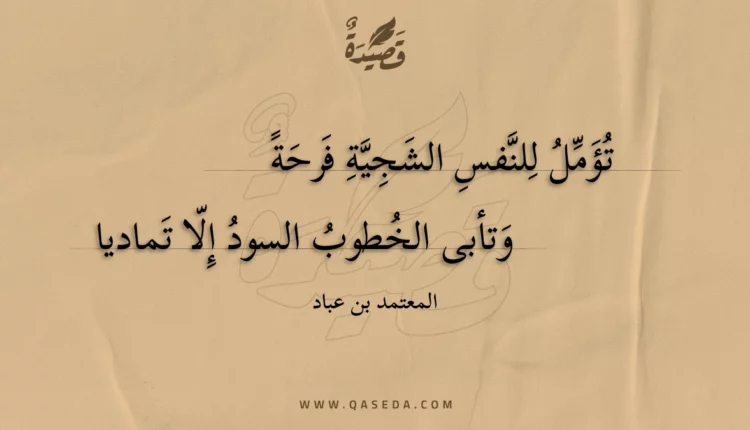 قَصِيدَةٌ
تُؤَمِّلُ لِلنَّفسِ الشَجِيَّةِ فَرحَةً
وَتأبى الخُطوبُ السودُ إِلّا تَماديا
المعتمد بن عباد
WWW.QASEDA.COM